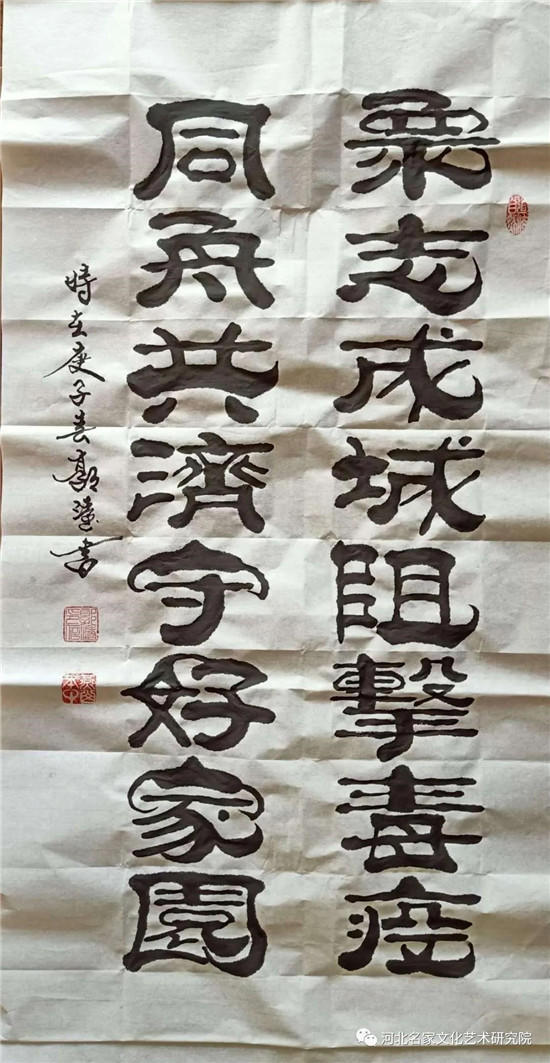 眾志成城阻擊毒疫
同舟共濟守好家園
時在庚子春郭書
河北名家文化艺术研究院